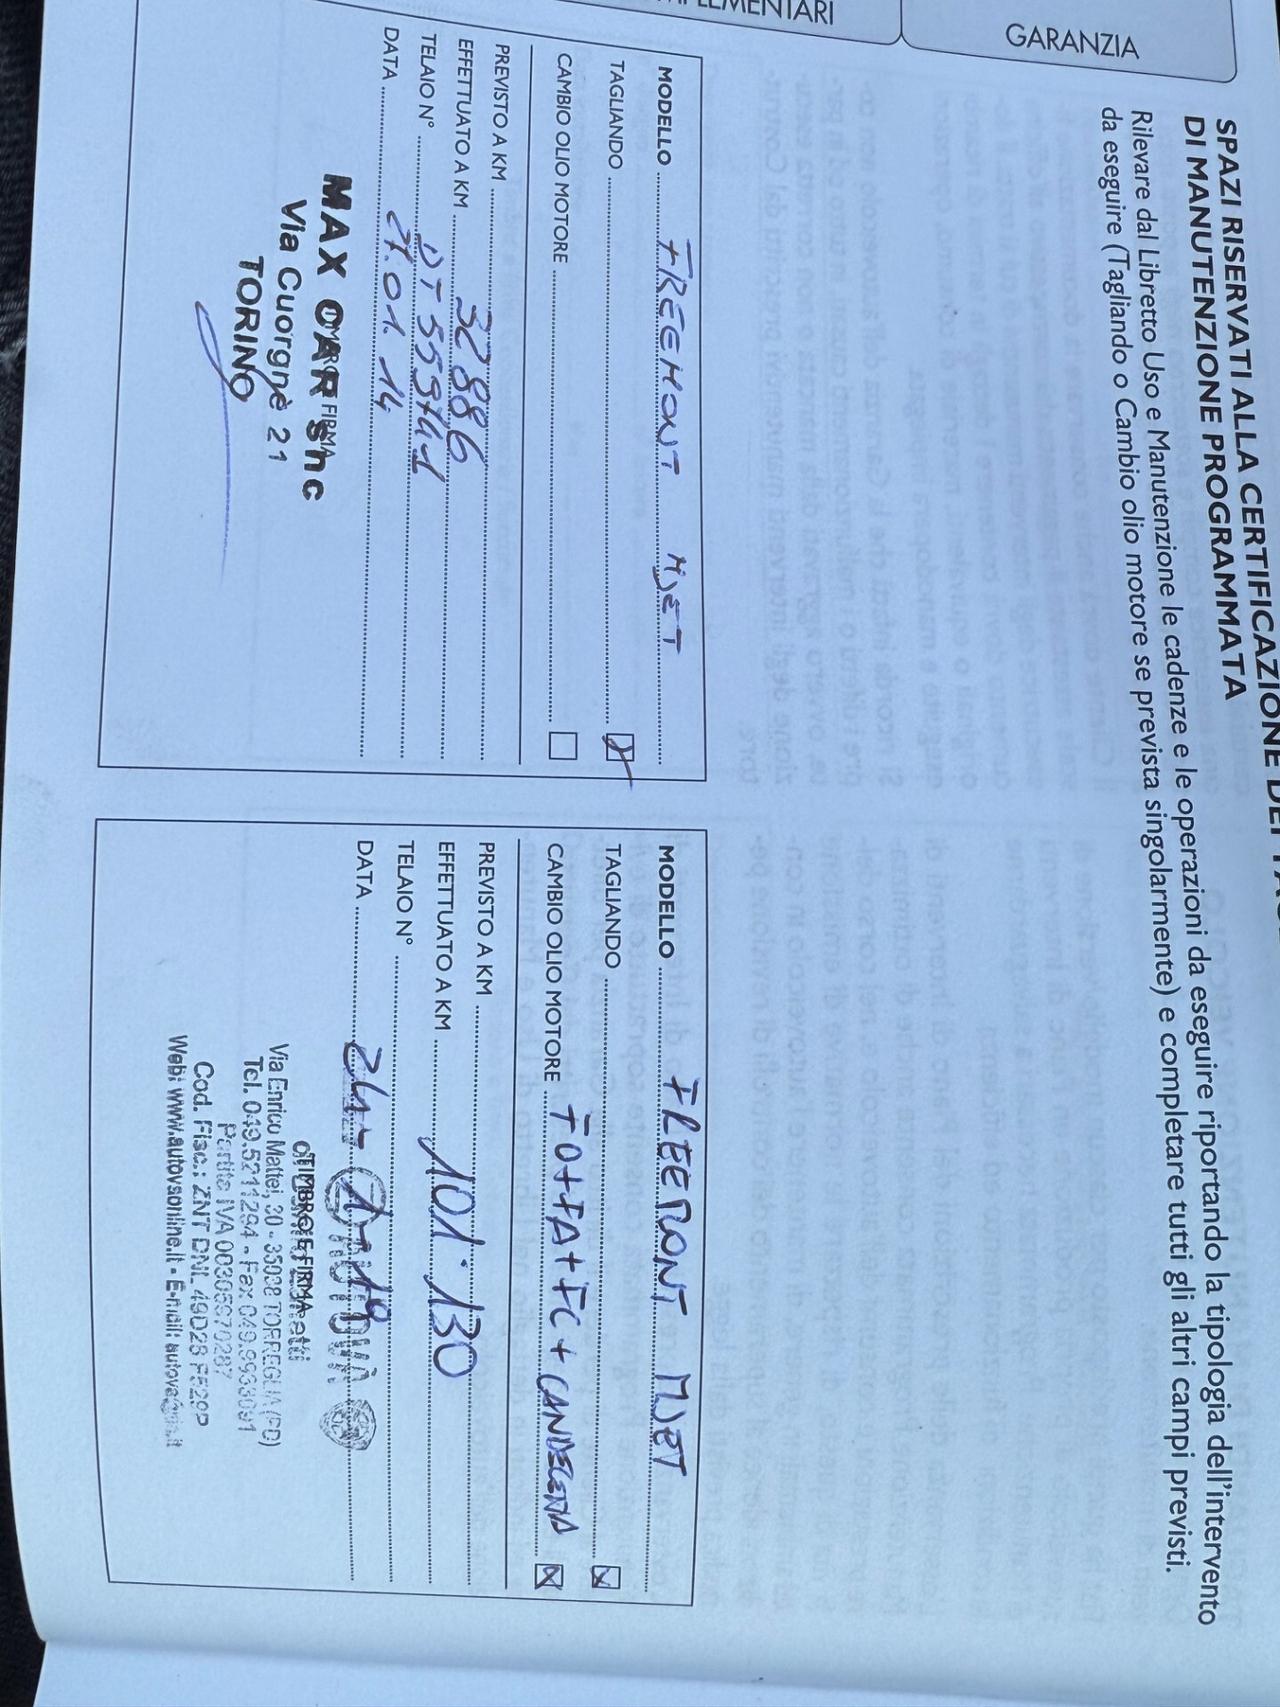 PLEMENTARI
GARANZIA
SPAZI RISERVATI ALLA CERTIFICAZIONE DEI
DI MANUTENZIONE PROGRAMMATA
Rilevare dal Libretto Uso e Manutenzione le cadenze e le operazioni da eseguire riportando la tipologia dell'intervento
da eseguire (Tagliando o Cambio olio motore se prevista singolarmente) e completare tutti gli altri campi previsti.
MODELLO FREEMONT MJET
TAGLIANDO
CAMBIO OLIO MOTORE
PREVISTO A KM
EFFETTUATO A KM 32886
TELAIO N°
DATA 27.01.14
TIMBRO E FIRMA
MAX CAR snc
Via Cuorgnè 21
TORINO
MODELLO FREEMONT MJET
TAGLIANDO
CAMBIO OLIO MOTORE FO+FA+FC+
PREVISTO A KM
EFFETTUATO A KM 101.130
TELAIO N°
DATA
TIMBRO E FIRMA
Via Enrico Mattei, 30 - 35038 TORREGLIA (PD)
Tel. 049.5211294 - Fax 049.9933091
Partita IVA 00305970287
Cod. Fisc.: ZNT DNL 49D28 F529P
Web: www.autovaonline.it - E-mail: